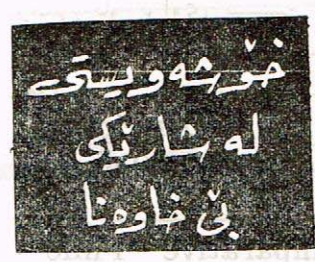 خۆشەویستی
لە شارێکی
بێ خاوەنا